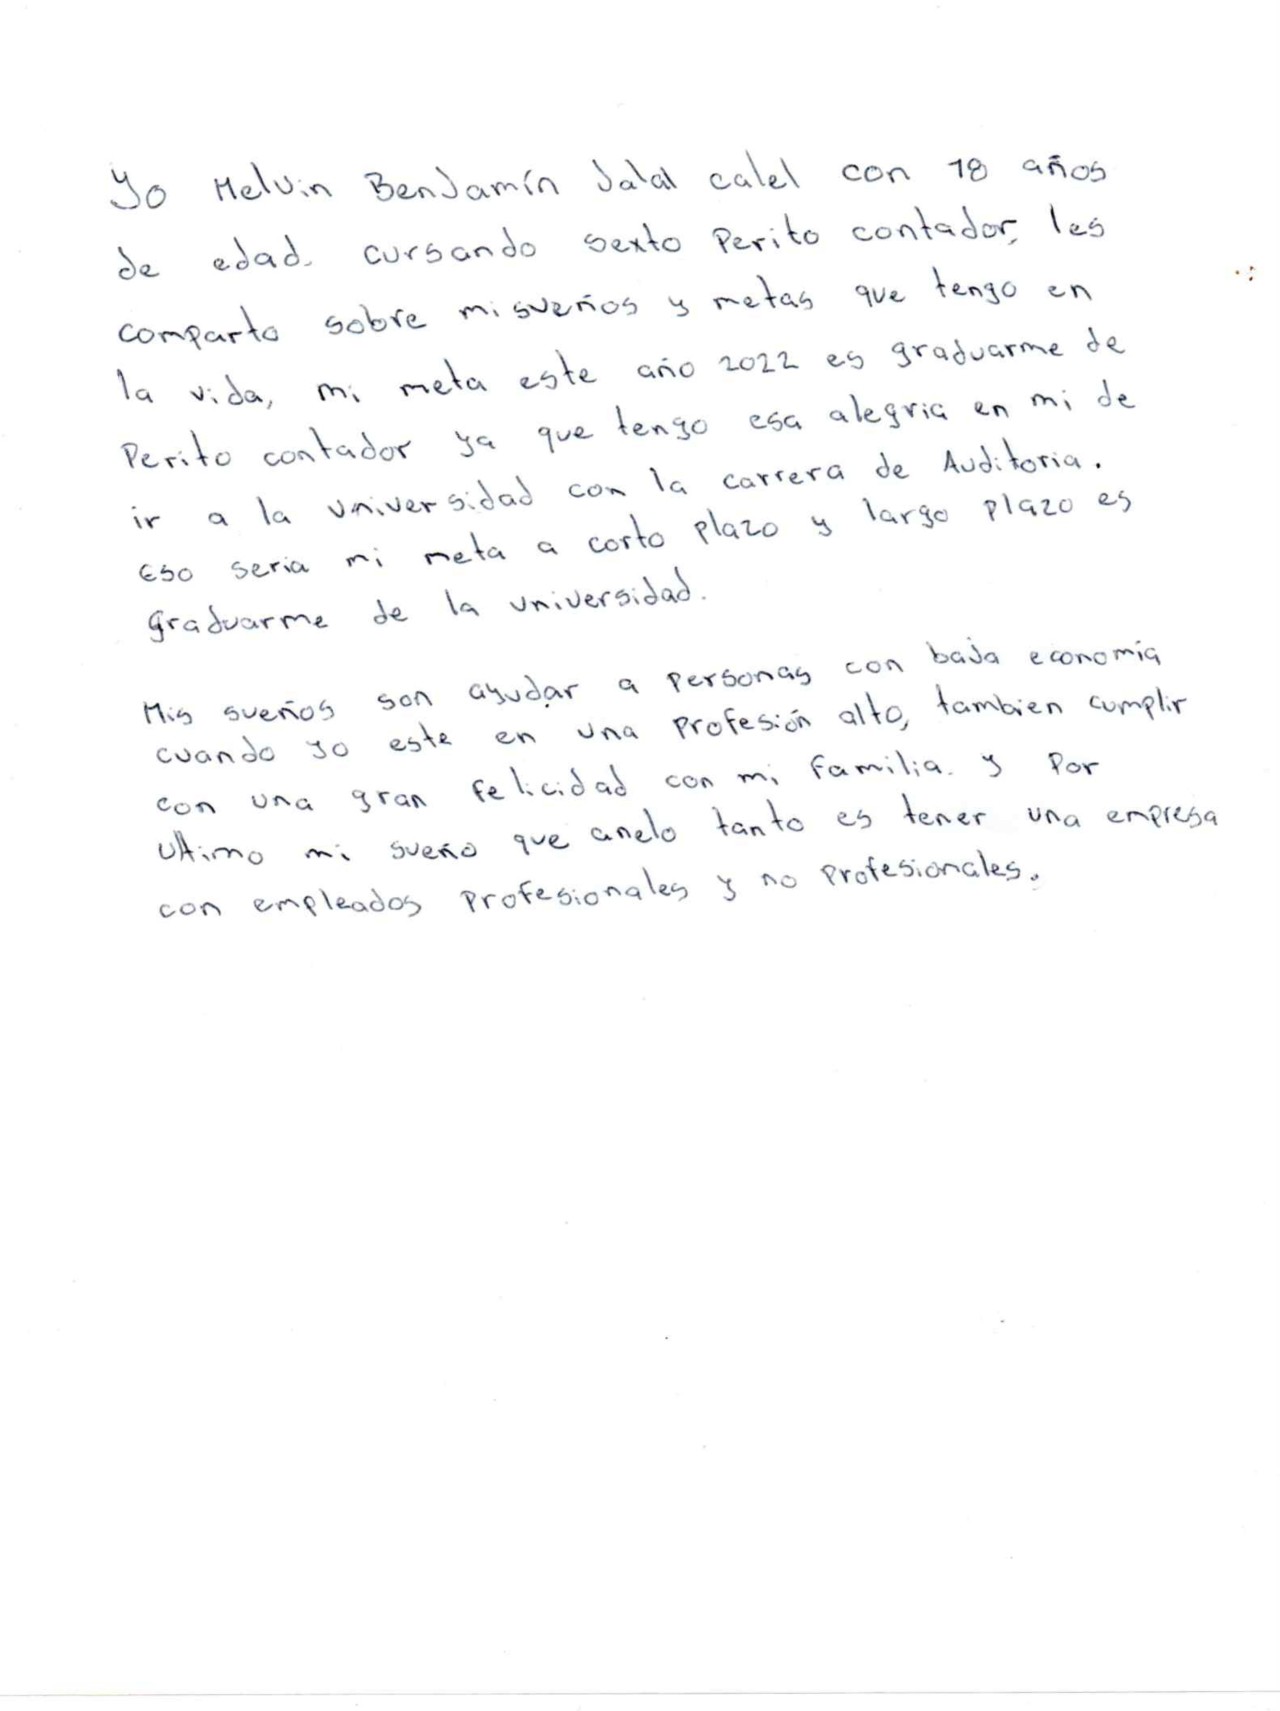 Yo Melvin Benjamín Jalal calel con 18 años
de edad. cursando sexto Perito contador, les
comparto sobre mi sueños y metas que tengo en
la vida, mi meta este año 2022 es graduarme de
Perito contador ya que tengo esa alegria en mi de
ir a la universidad con la carrera de Auditoria.
Eso seria mi meta a corto plazo y largo plazo es
graduarme de la universidad.
Mis sueños son ayudar a personas con baja economía
cuando yo este en una Profesión alto, tambien cumplir
con una gran felicidad con mi familia. y Por
ultimo mi sueño que anelo tanto es tener una empresa
con empleados Profesionales y no Profesionales.